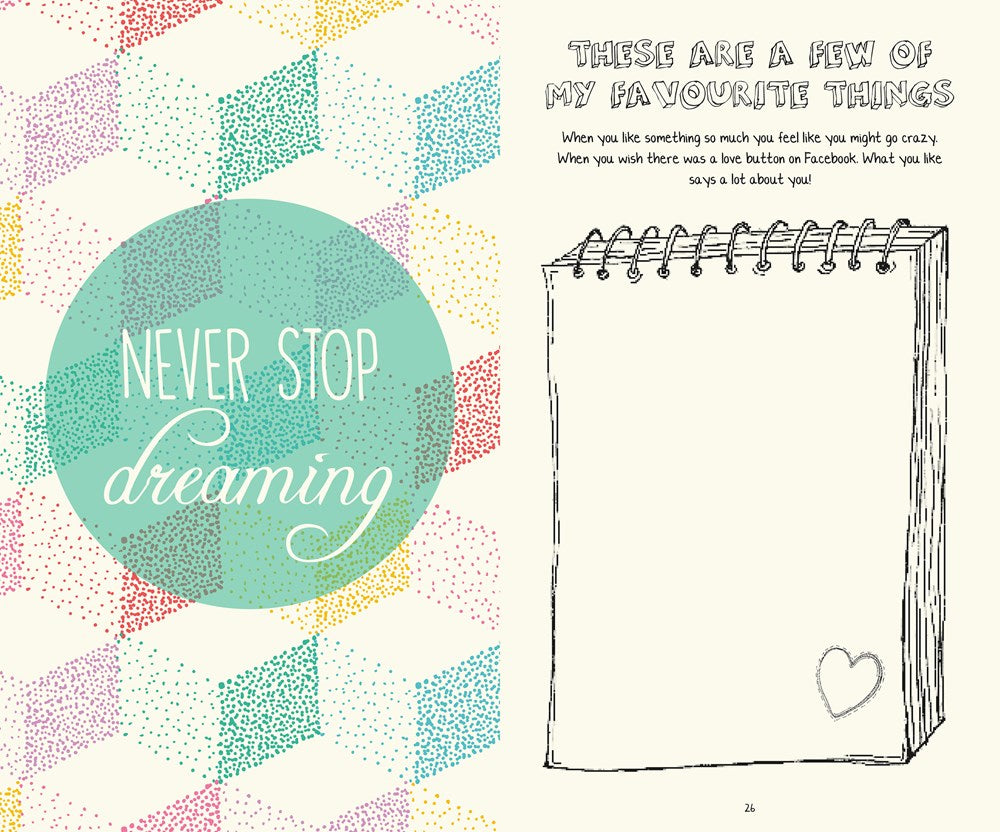 NEVER STOP
dreaming
THESE ARE A FEW OF
MY FAVOURITE THINGS
When you like something so much you feel like you might go crazy.
When you wish there was a love button on Facebook. What you like
says a lot about you!
26